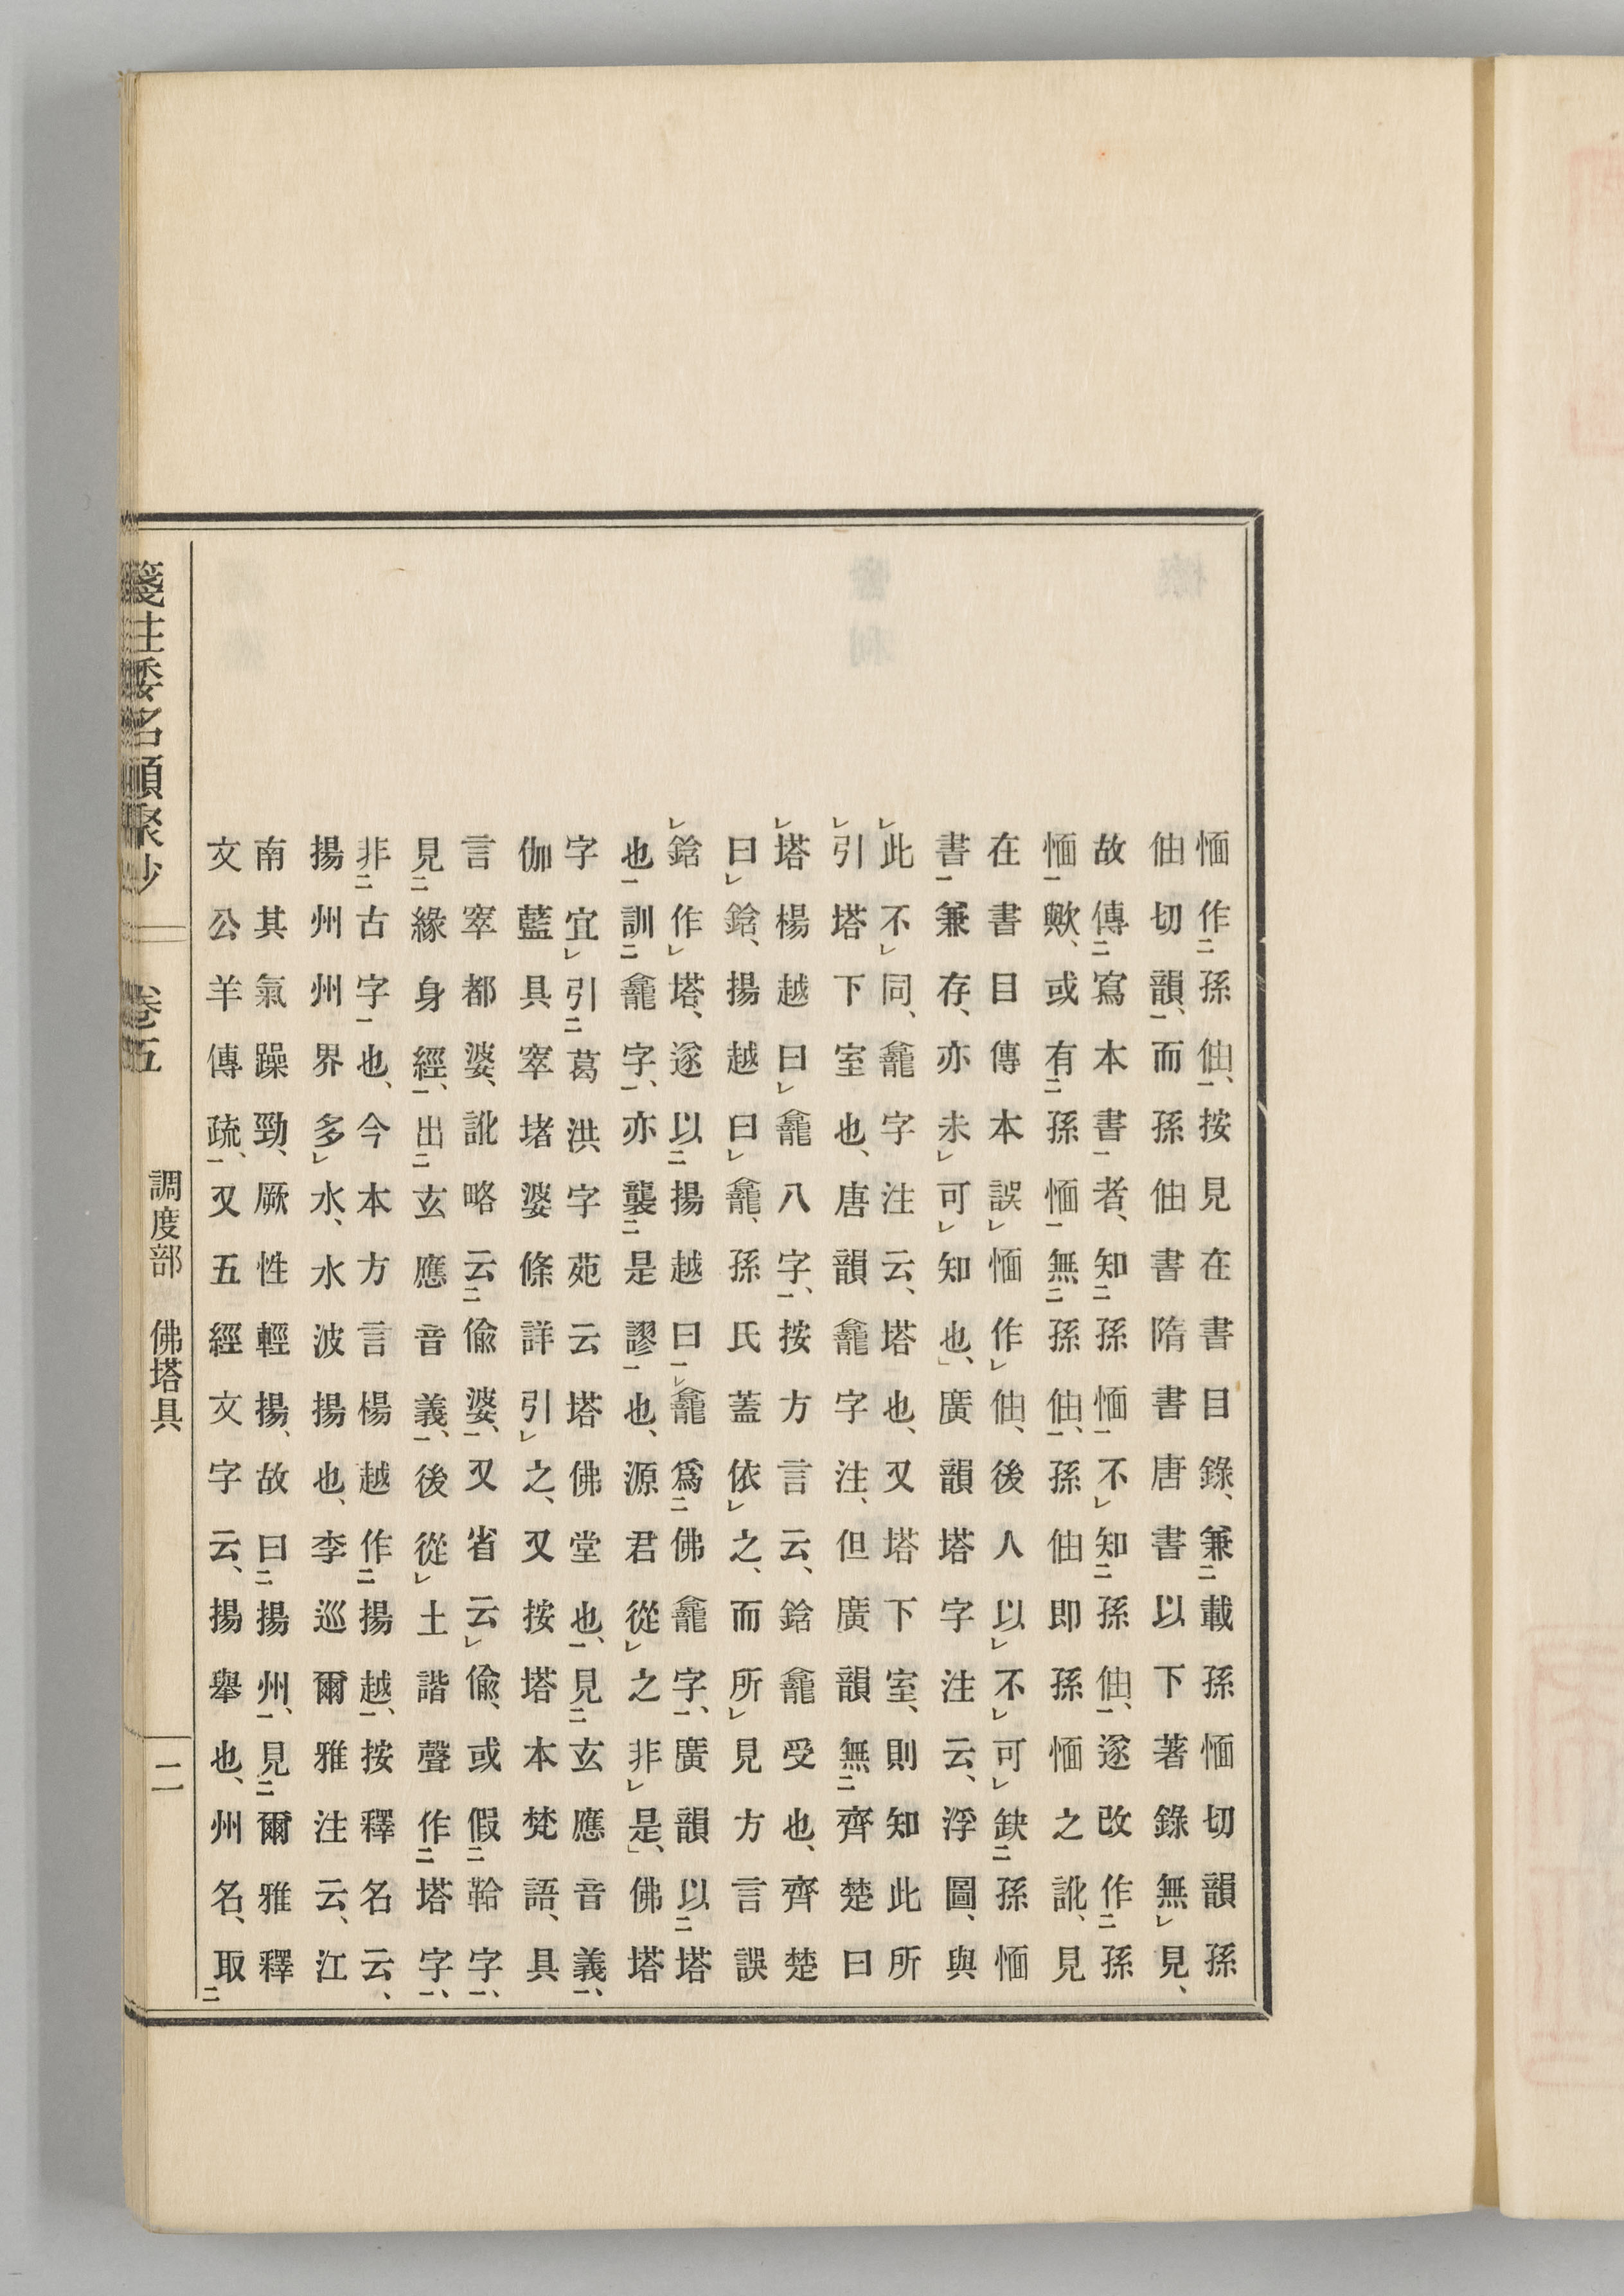 愐作孫伷、按見在書目錄、兼載孫愐切韻孫
伷切韻、而孫伷書隋書唐書以下著錄無見、
故傳寫本書者、知孫愐不知孫伷、遂改作孫
愐歟、或有孫愐無孫伷、孫伷即孫愐之訛、見
在書目傳本誤愐作伷、後人以不可缺孫愐
書兼存、亦未可知也、廣韻塔字注云、浮圖、與
此不同、龕字注云、塔也、又塔下室、則知此所
引塔下室也、唐韻龕字注、但廣韻無齊楚曰
塔楊越曰龕八字、按方言云、鋡龕受也、齊楚
曰鋡、揚越曰龕、孫氏蓋依之、而所見方言誤
鋡作塔、遂以揚越曰龕爲佛龕字、廣韻以塔
也訓龕字、亦襲是謬也、源君從之非是、佛塔
字宜引葛洪字苑云塔佛堂也、見玄應音義、
伽藍具窣堵婆條詳引之、又按塔本梵語、具
言窣都婆、訛略云偸婆、又省云偸、或假鞈字、
見緣身經、出玄應音義、後從土諧聲作塔字、
非古字也、今本方言楊越作揚越、按釋名云、
揚州州界多水、水波揚也、李巡爾雅注云、江
南其氣躁勁、厥性輕揚、故曰揚州、見爾雅釋
文公羊傳疏、又五經文字云、揚舉也、州名、取
箋注倭名類聚抄 卷五 調度部 佛塔具 二